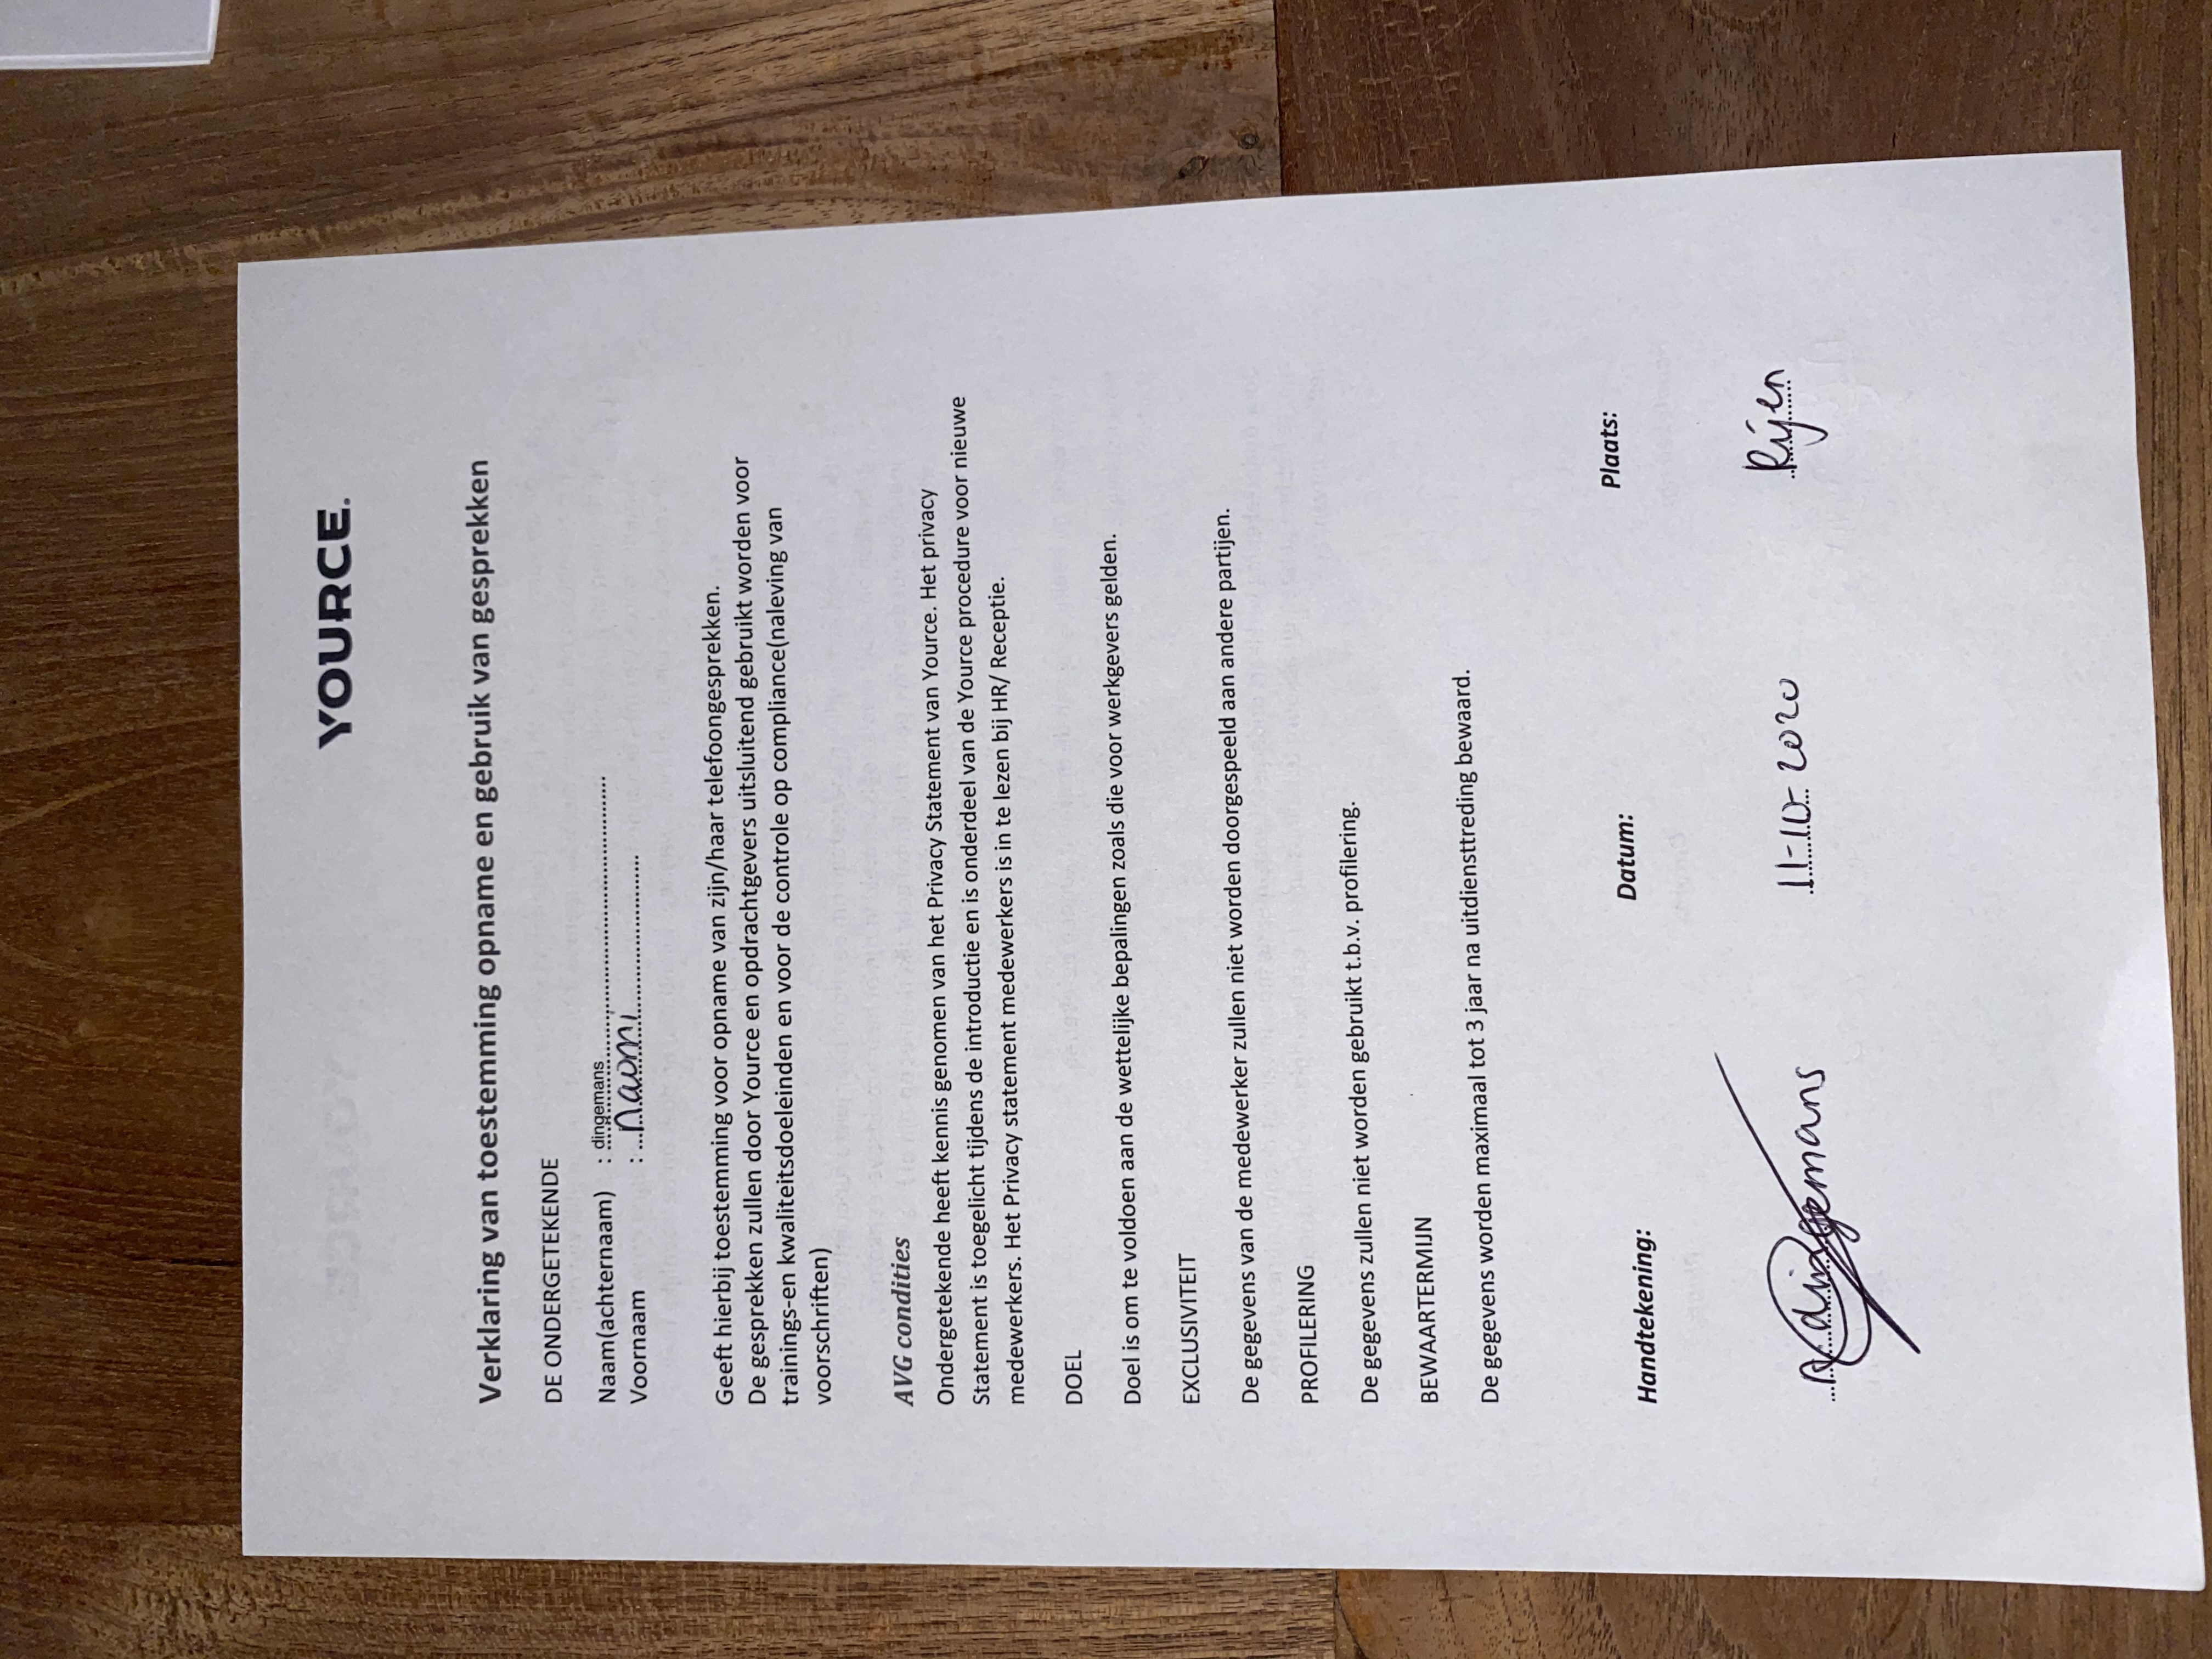 YOURCE.
Verklaring van toestemming opname en gebruik van gesprekken
DE ONDERGETEKENDE
Naam(achternaam) : dingemans
Voornaam : naomi
Geeft hierbij toestemming voor opname van zijn/haar telefoongesprekken.
De gesprekken zullen door Yource en opdrachtgevers uitsluitend gebruikt worden voor
trainings-en kwaliteitsdoeleinden en voor de controle op compliance(naleving van
voorschriften)
AVG condities
Ondergetekende heeft kennis genomen van het Privacy Statement van Yource. Het privacy
Statement is toegelicht tijdens de introductie en is onderdeel van de Yource procedure voor nieuwe
medewerkers. Het Privacy statement medewerkers is in te lezen bij HR/ Receptie.
DOEL
Doel is om te voldoen aan de wettelijke bepalingen zoals die voor werkgevers gelden.
EXCLUSIVITEIT
De gegevens van de medewerker zullen niet worden doorgespeeld aan andere partijen.
PROFILERING
De gegevens zullen niet worden gebruikt t.b.v. profilering.
BEWAARTERMIJN
De gegevens worden maximaal tot 3 jaar na uitdiensttreding bewaard.
Handtekening: Datum: Plaats:
dingemans 11-10-2020 Rijen